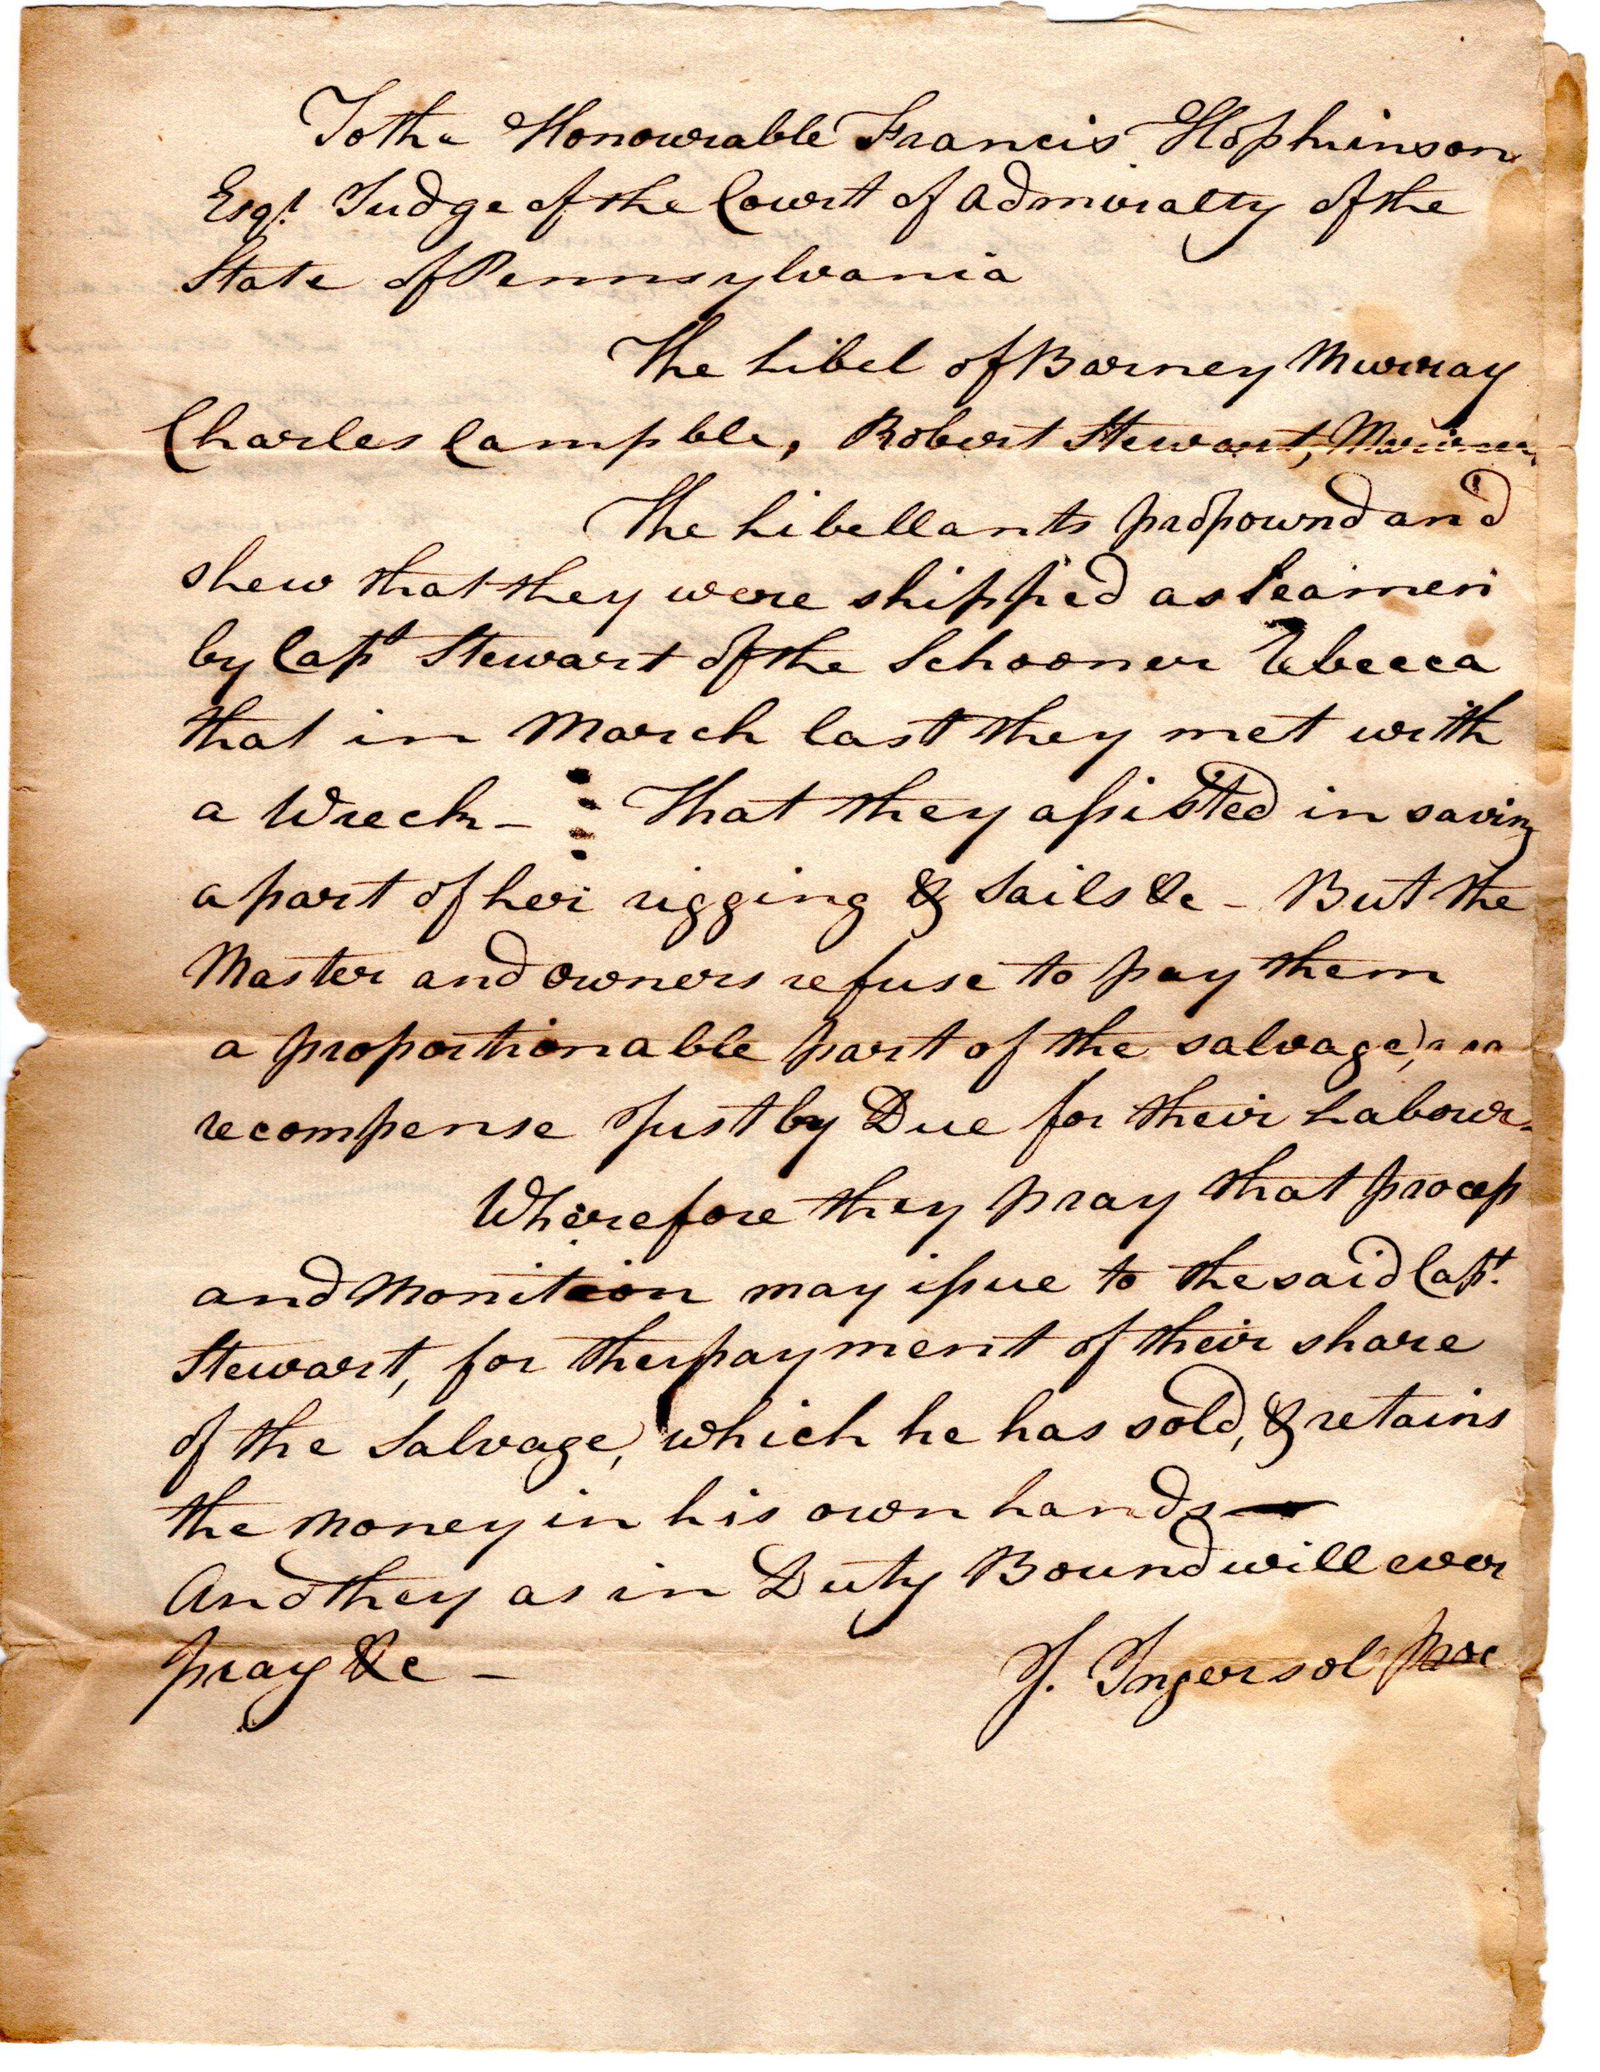 To the Honourable Francis Hopkinson
Esqr. Judge of the Court of Admiralty of the
State of Pennsylvania
The Libel of Barney Murray
Charles Campble, Robert Stewart, Mariners
The Libellants propound and
shew that they were shipped as Seamen
by Capt Stewart of the Schooner Rebecca
that in March last they met with
a Wreck - That they assisted in saving
a part of her rigging & Sails &c - But the
Master and owners refuse to pay them
a proportionable part of the salvage, a
recompense justly Due for their Labour -
Wherefore they pray that process
and Monition may issue to the said Capt.
Stewart, for the payment of their share
of the Salvage, which he has sold, & retains
the Money in his own hands —
And they as in Duty Bound will ever
pray &c -
J. Ingersol Proc